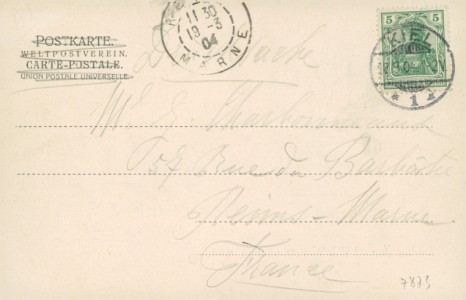 POSTKARTE.
WELTPOSTVEREIN.
CARTE-POSTALE.
UNION POSTALE UNIVERSELLE.
11 30
19 -3
04
MARNE
5 5
KIEL
1
Charbonneaux
54 Rue du Barbâtre
Reims - Marne
France
7873